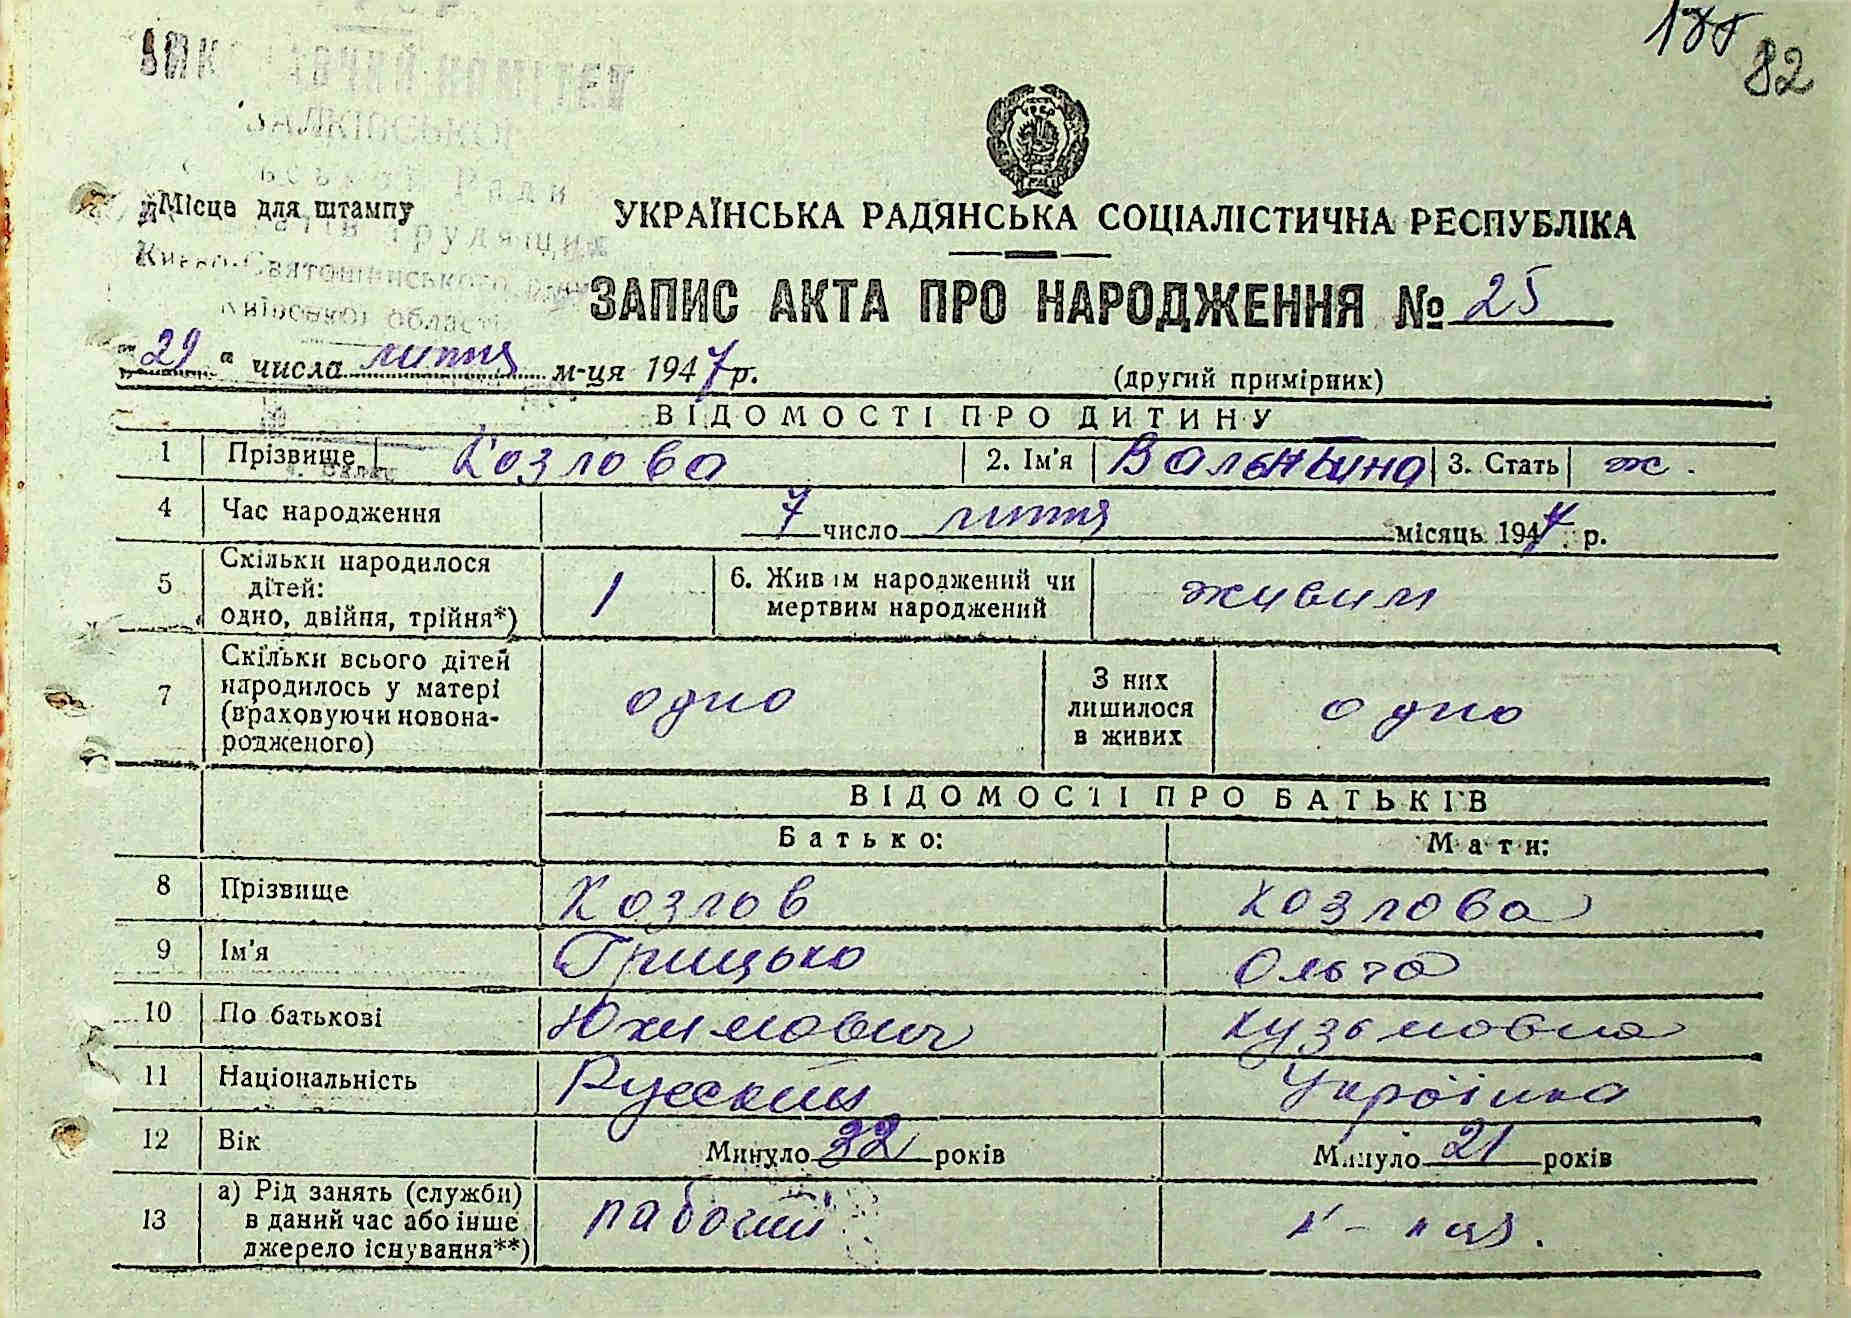 188
82
ВИКОНАВЧИЙ КОМІТЕТ
Ради
трудящих
Києво-Святошинського р-ну
Київської області
Місце для штампу
УКРАЇНСЬКА РАДЯНСЬКА СОЦІАЛІСТИЧНА РЕСПУБЛІКА
ЗАПИС АКТА ПРО НАРОДЖЕННЯ № 25
"29" числа липня м-ця 1947 р.
(другий примірник)
ВІДОМОСТІ ПРО ДИТИНУ
1 Прізвище Козлова 2. Ім'я Вальнтина 3. Стать ж.
4 Час народження 7 число липня місяць 1947 р.
5 Скільки народилося дітей: одно, двійня, трійня*) 1 6. Живим народжений чи мертвим народжений живим
7 Скільки всього дітей народилось у матері (враховуючи новонародженого) одно З них лишилося в живих одно
ВІДОМОСТІ ПРО БАТЬКІВ
Батько: Мати:
8 Прізвище Козлов Козлова
9 Ім'я Грицько Ольга
10 По батькові Юхимович Кузьмовна
11 Національність Русский Українка
12 Вік Минуло 32 років Минуло 21 років
13 а) Рід занять (служби) в даний час або інше джерело існування**) рабочий к-ця.